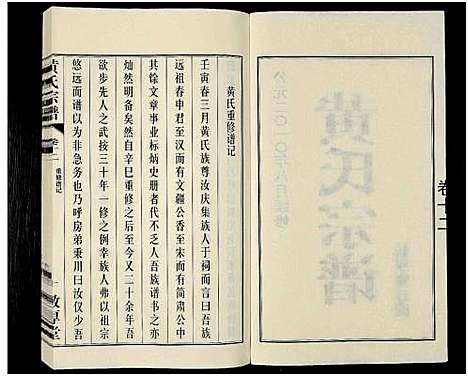 卷十二
黄氏宗谱
公元二〇一〇年八月
黄氏重修谱记
壬寅春三月黄氏族尊汝庆集族人于祠而言曰吾族
远祖春申君至汉而有文疆公香至宋而有简肃公中
其馀文章事业标炳史册者代不乏人吾族谱书之亦
灿然明备矣然自辛巳重修之后至今又二十余年吾
欲步先人之武按三十年一修之例幸族人弗以祖宗
悠远而谱以为非急务也乃呼房弟秉川曰汝仅少吾
黄氏宗谱
卷十二
重修谱记
一
敦厚堂